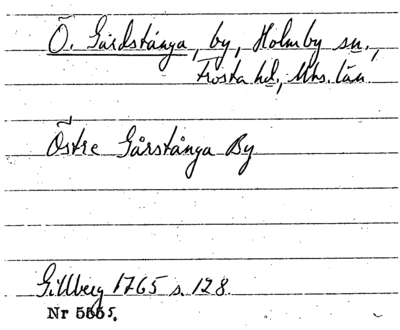 Ö. Gårdstånga, by, Holmby sn.,
Frosta hd., Mhs. län
Östre Gårstånga By
Gillberg 1765 s. 128.
Nr 5555.